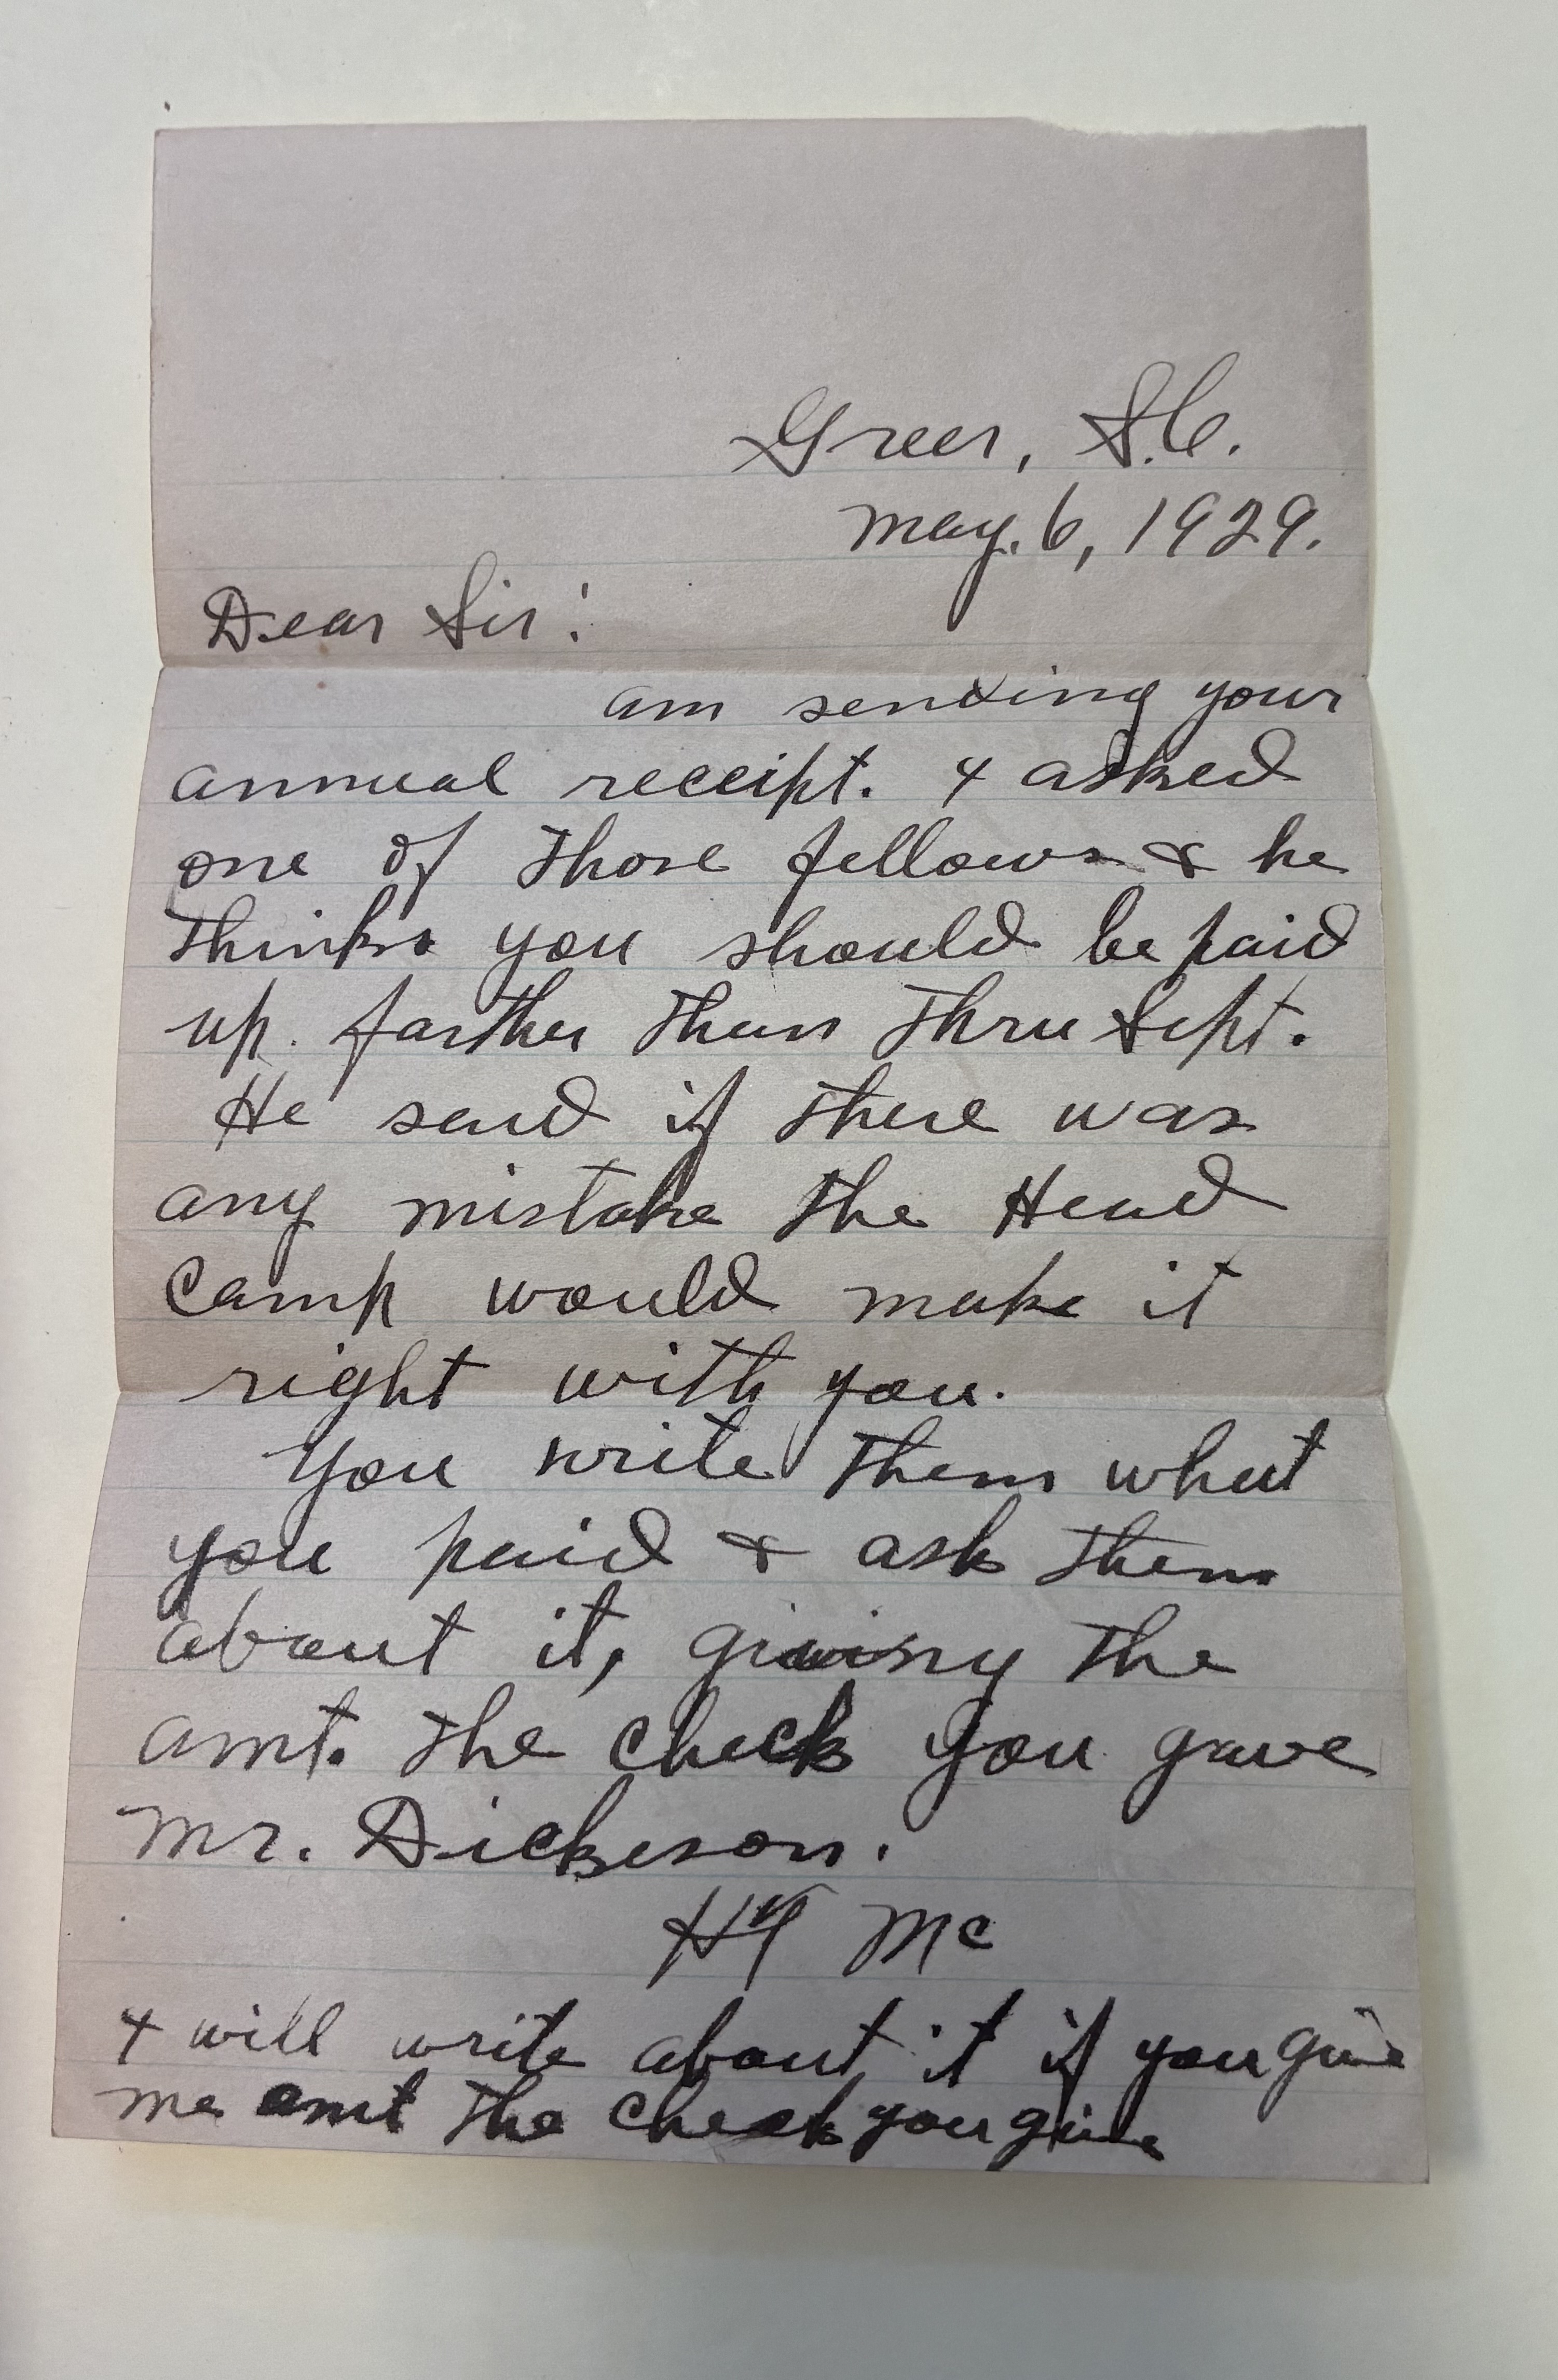 Greer, S.C.
May. 6, 1929.
Dear Sir:
am sending your
annual receipt. I asked
one of those fellows & he
thinks you should be paid
up. farther than thru Sept.
He said if there was
any mistake the Head
Camp would make it
right with you.
You write them what
you paid & ask them
about it, giving the
amt. the check you gave
Mr. Dickeson.
Mc
I will write about it if you give
me amt the check you give